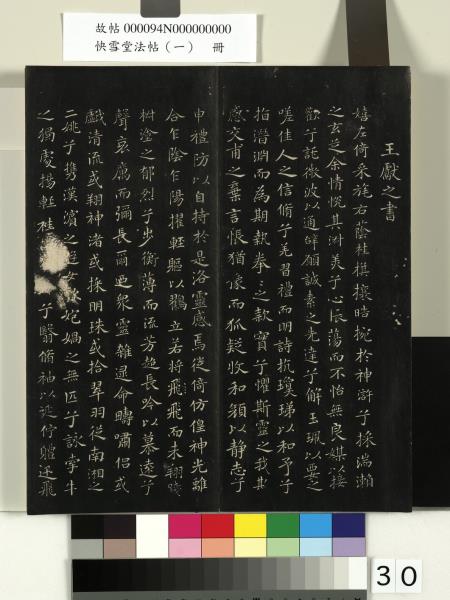 故帖 000094N000000000
快雪堂法帖（一） 冊
王獻之書
嬉左倚采旄右蔭桂旗攘皓捥於神滸兮採湍瀨
之玄芝余情悅其淑美兮心振蕩而不怡無良媒以接
歡兮託微波以通辭願誠素之先達兮解玉珮以要之
嗟佳人之信脩兮羌習禮而明詩抗瓊珶以和予兮
指潛淵而為期執拳々之款實兮懼斯靈之我欺
感交甫之棄言悵猶豫而狐疑收和顏以靜志兮
申禮防以自持於是洛靈感焉徙倚仿偟神光離
合乍陰乍陽擢輕軀以鶴立若將飛飛而未翔踐
椒塗之郁烈兮步衡薄而流芳超長吟以慕遠兮
聲哀厲而彌長爾迺眾靈雜遝命疇嘯侶或
戲清流或翔神渚或採明珠或拾翠羽從南湘之
二姚兮攜漢濱之游女歎炮媧之無匹兮詠牽牛
之獨處揚輕袿兮翳脩袖以延佇體迅飛
30